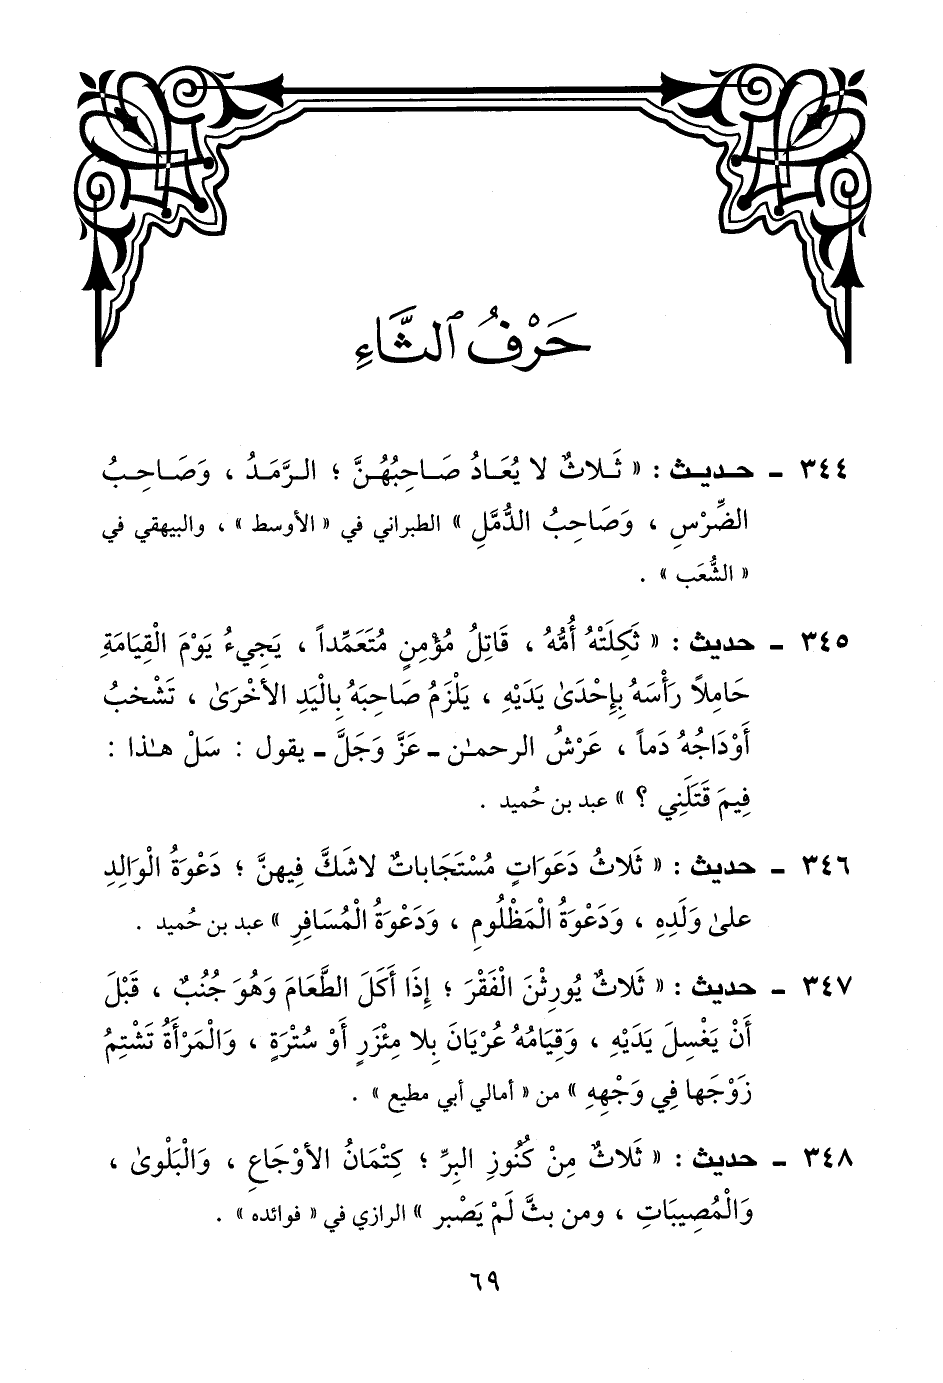 حَرْفُ ٱلثَّاءِ
٣٤٤ - حديث : « ثَلاثٌ لا يُعَادُ صَاحِبُهُنَّ ؛ الرَّمَدُ ، وَصَاحِبُ
الضِّرْسِ ، وَصَاحِبُ الدُّمَّلِ » الطبراني في « الأوسط » ، والبيهقي في
« الشُّعَب » .
٣٤٥ - حديث : « ثَكِلَتْهُ أُمُّهُ ، قَاتِلُ مُؤْمِنٍ مُتَعَمِّداً ، يَجِيءُ يَوْمَ الْقِيَامَةِ
حَامِلاً رَأْسَهُ بِإِحْدَىٰ يَدَيْهِ ، يَلْزَمُ صَاحِبَهُ بِالْيَدِ الأخْرَىٰ ، تَشْخبُ
أوْدَاجُهُ دَماً ، عَرْشُ الرحمـٰن - عَزَّ وَجَلَّ - يقول : سَلْ هـٰذا :
فِيمَ قَتَلَنِي ؟ » عبد بن حُميد .
٣٤٦ - حديث : « ثَلاثُ دَعَوَاتٍ مُسْتَجَاباتٌ لاشَكَّ فِيهنَّ ؛ دَعْوَةُ الْوَالِدِ
علىٰ وَلَدِهِ ، وَدَعْوَةُ الْمَظْلُومِ ، وَدَعْوَةُ الْمُسَافِرِ » عبد بن حُميد .
٣٤٧ - حديث : « ثَلاثٌ يُورِثْنَ الْفَقْرَ ؛ إِذَا أَكَلَ الطَّعَامَ وَهُوَ جُنُبٌ ، قَبْلَ
أَنْ يَغْسِلَ يَدَيْهِ ، وَقِيَامُهُ عُرْيَانَ بِلا مِئْزَرٍ أوْ سُتْرَةٍ ، وَالْمَرْأَةُ تَشْتِمُ
زَوْجَها فِي وَجْهِهِ » من « أمالي أبي مطيع » .
٣٤٨ - حديث : « ثَلاثٌ مِنْ كُنُوزِ البِرِّ ؛ كِتْمَانُ الأوْجَاعِ ، وَالْبَلْوىٰ ،
وَالْمُصِيبَاتِ ، ومن بثَّ لَمْ يَصْبر » الرازي في « فوائده » .
٦٩